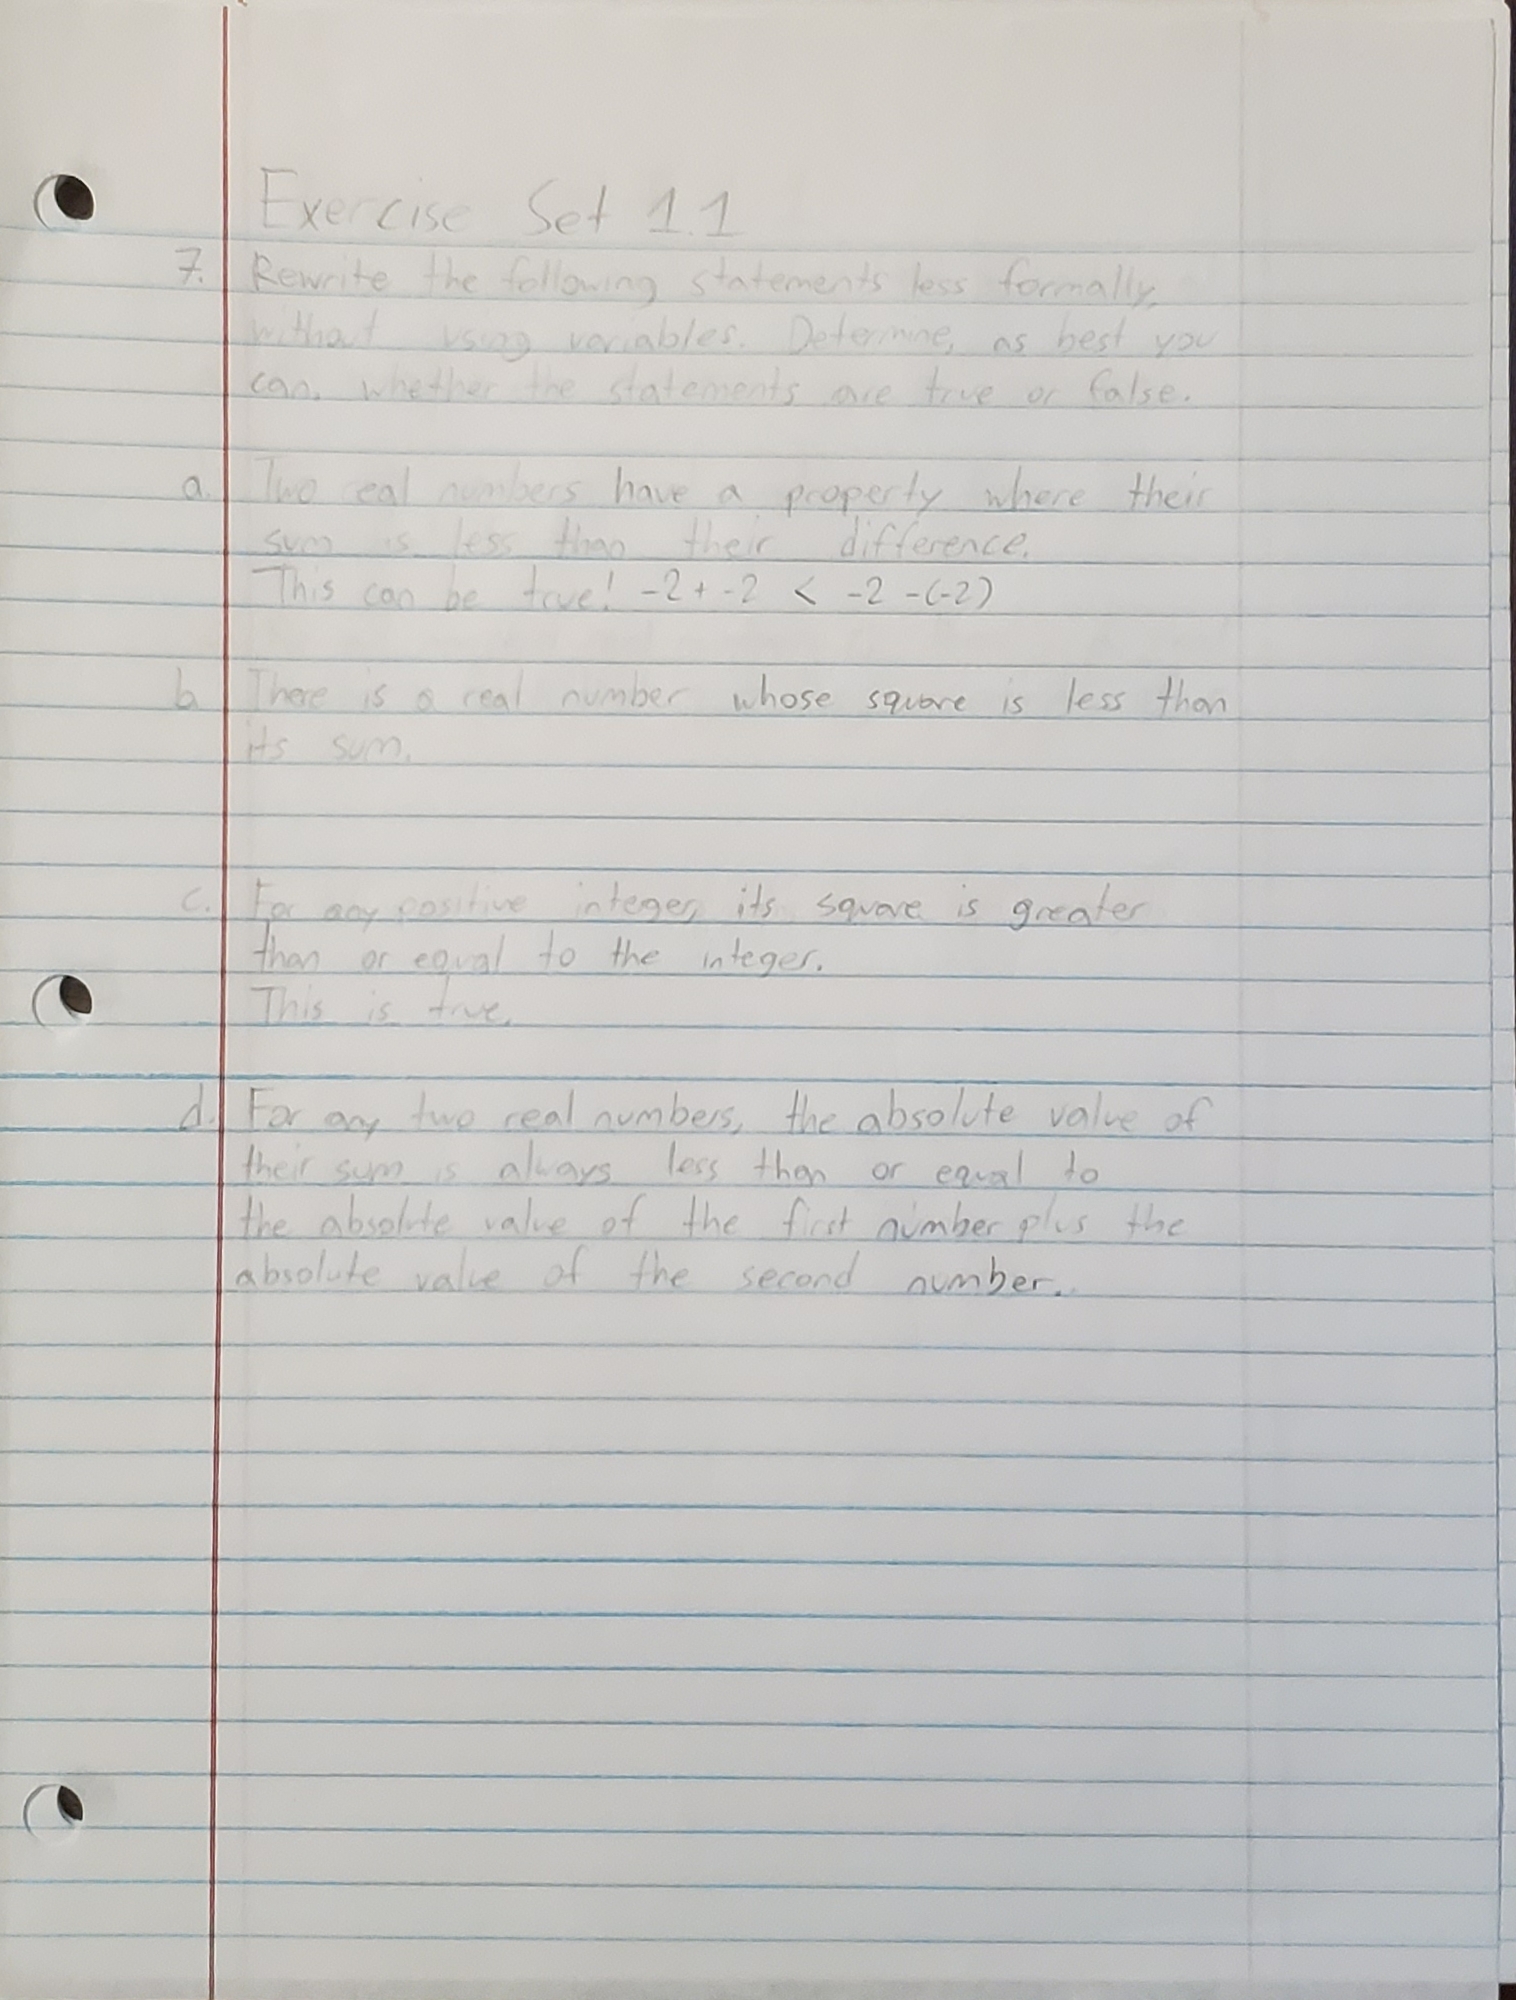 Exercise Set 1.1
7. Rewrite the following statements less formally,
without using variables. Determine, as best you
can, whether the statements are true or false.
a. Two real numbers have a property where their
sum is less than their difference.
This can be true! -2 + -2 < -2 -(-2)
b. There is a real number whose square is less than
its sum.
c. For any positive integer, its square is greater
than or equal to the integer.
This is true.
d. For any two real numbers, the absolute value of
their sum is always less than or equal to
the absolute value of the first number plus the
absolute value of the second number.